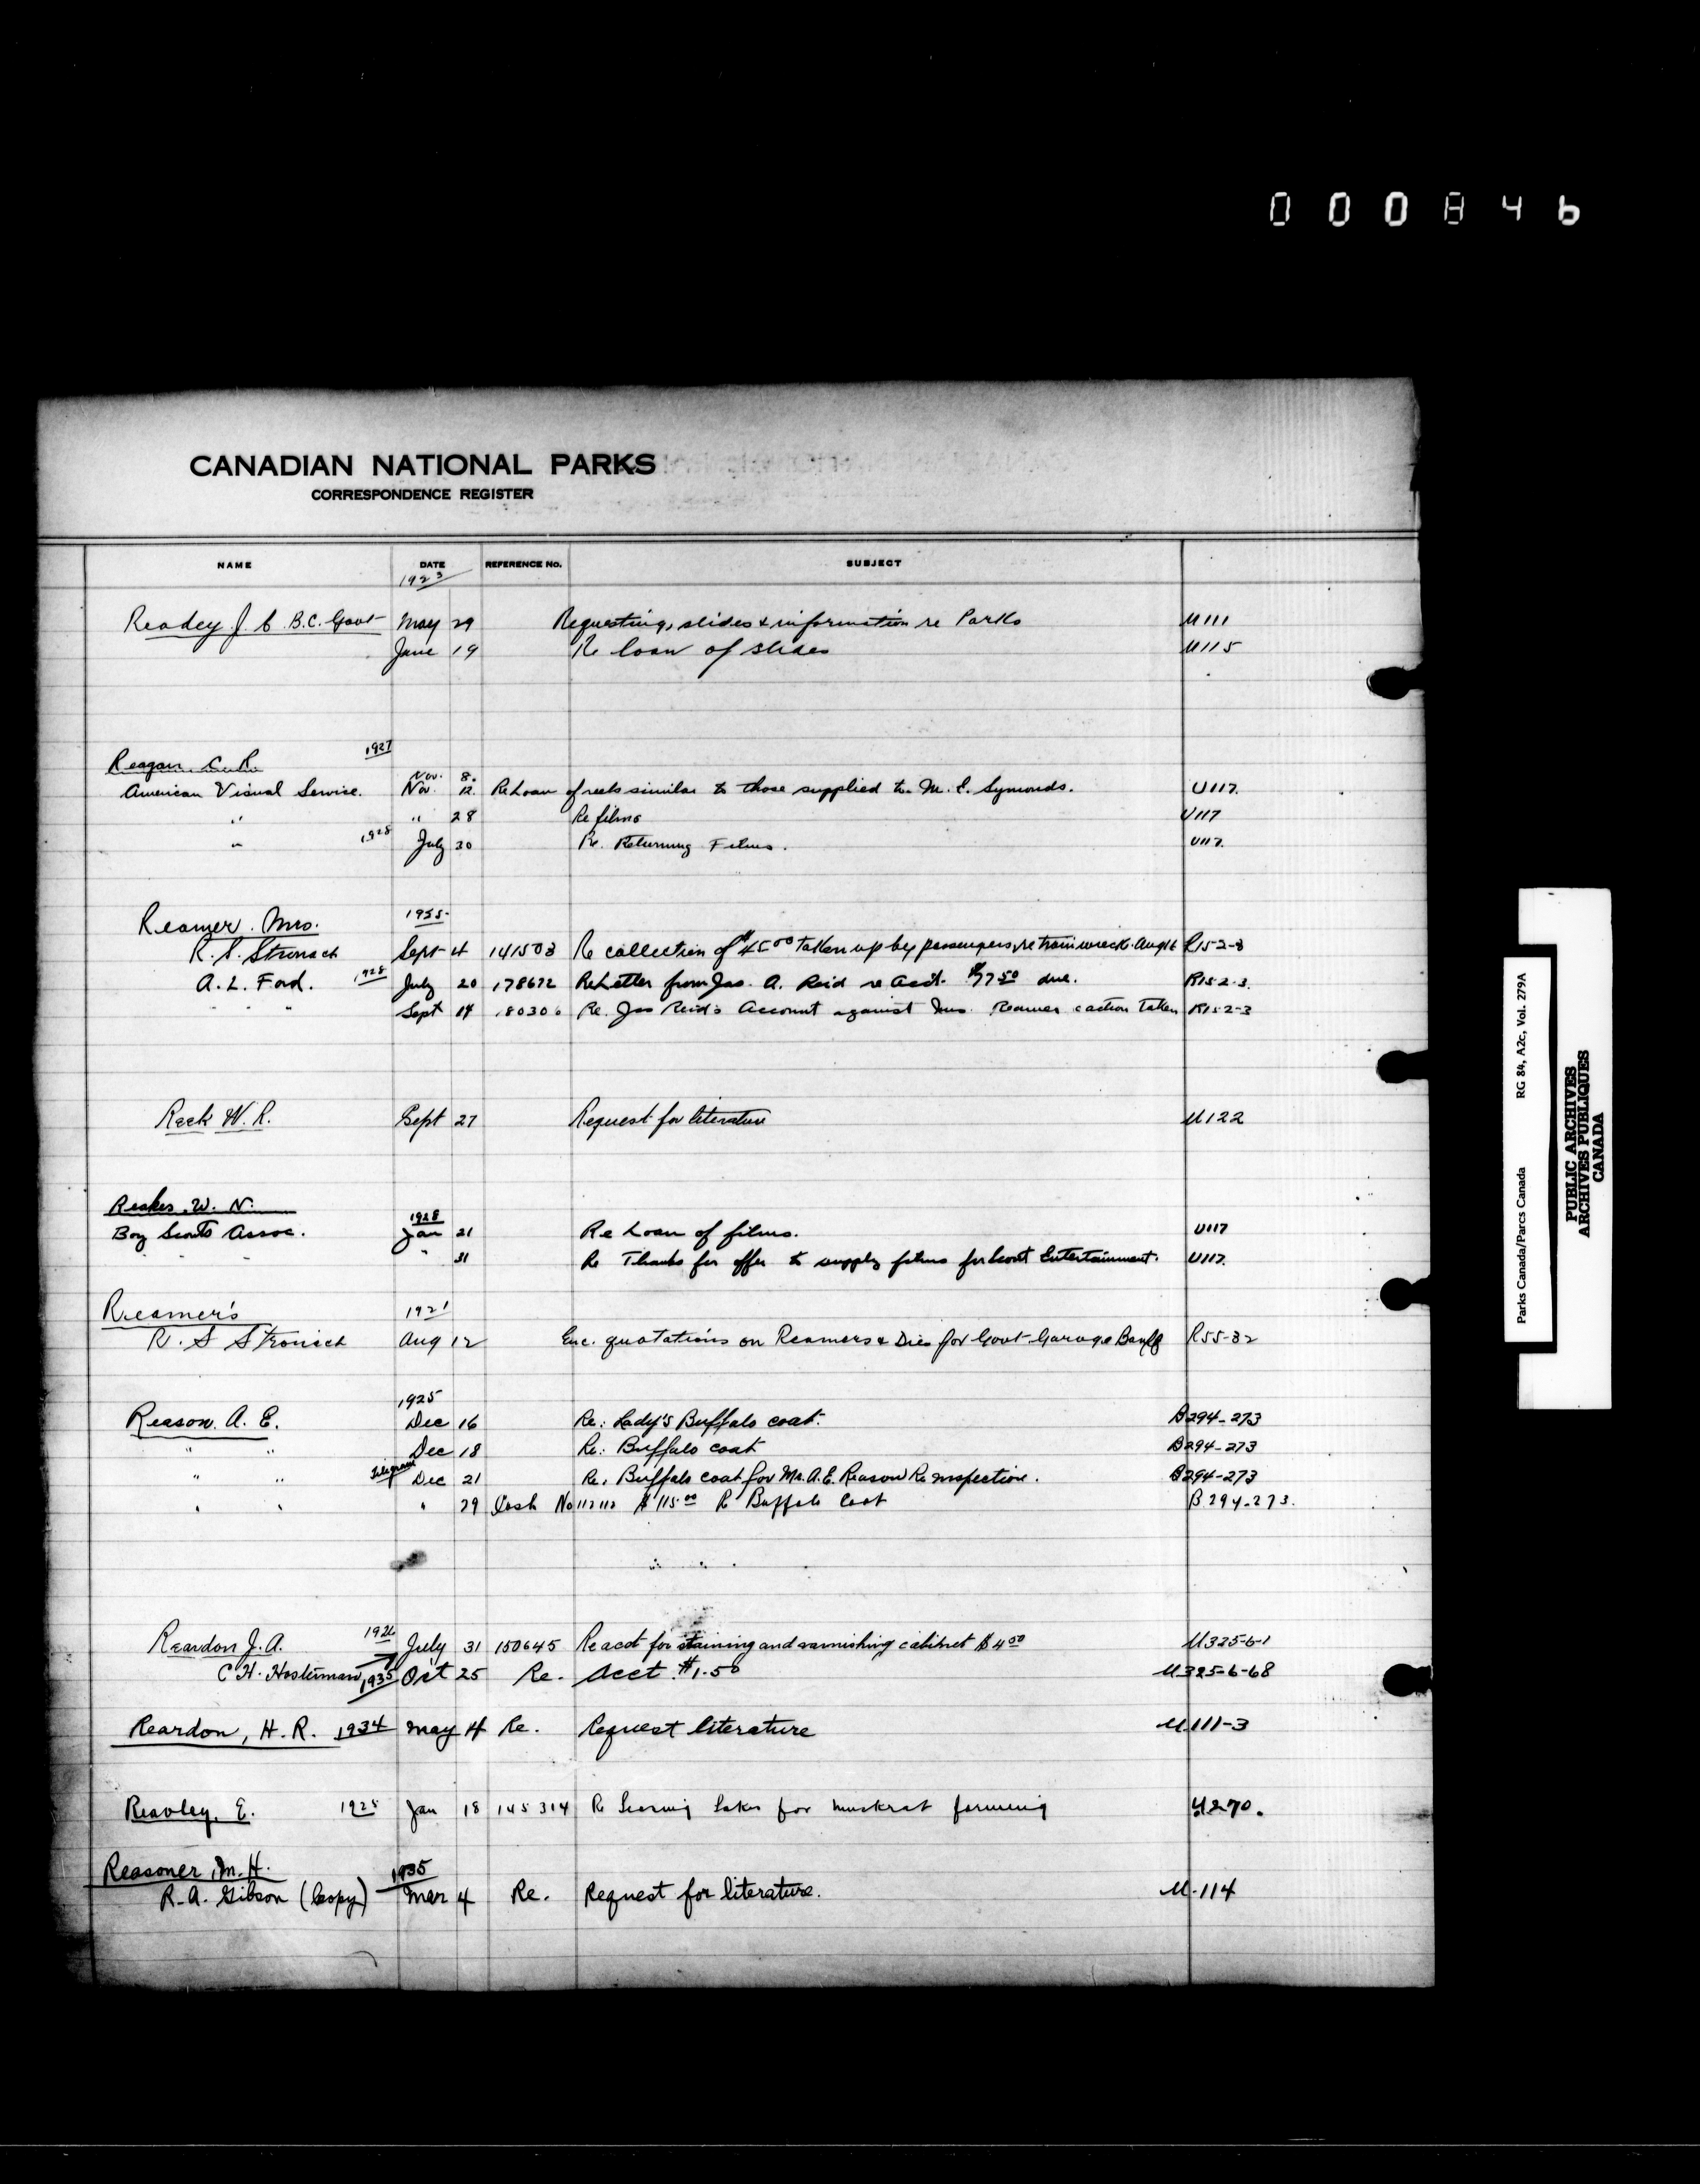 000846
CANADIAN NATIONAL PARKS
CORRESPONDENCE REGISTER
NAME DATE REFERENCE No. SUBJECT
1923
Readey J. C. B.C. Govt May 29 Requesting slides & information re Parks U111
June 19 Re loan of slides U115
Reagan C. R. 1927
Nov. 8.
American Visual Service. Nov. 12. Re Loan of reels similar to those supplied to M. E. Symonds. U117.
" " 28 Re films U117
" 1928 July 30 Re. Returning Films. U117.
Reamer. Mrs. 1925
R. S. Stronach Sept 4 141503 Re collection of $45.00 taken up by passengers, re train wreck. Aug 16 R15-2-3
A. L. Ford. 1928 July 20 178672 Re Letter from Jas. A. Reid re acct. $77.50 due. R15-2-3.
" " Sept 14 180306 Re. Jas Reid's Account against Mrs. Reamer & action taken R15-2-3
Reek W. R. Sept 27 Request for literature U122
Reakes, W. N. 1928
Boy Scouts Assoc. Jan 21 Re Loan of films. U117
" " " 31 Re Thanks for offer to supply films for Scout Entertainment. U117.
Reamer's 1921
R. S Stronach Aug 12 Enc. quotations on Reamers & Dies for Govt Garage Banff R55-32
1925
Reason. A. E. Dec 16 Re: Lady's Buffalo coat. B294-273
" " Dec 18 Re: Buffalo coat B294-273
" " Telegram Dec 21 Re. Buffalo coat for Mr. A.E. Reason Re inspection. B294-273
" " " 29 Cash No 112112 $115.00 Re Buffalo Coat B.294-273.
Reardon J. A. 1926 July 31 150645 Re acct for staining and varnishing cabinet $4.00 U325-6-1
C. H. Hosterman 1935 Oct 25 Re. Acct. $1.50 U325-6-68
Reardon, H. R. 1934 May 14 Re. Request literature U111-3
Reavley, E. 1925 Jan 18 145314 Re Leasing Lakes for muskrat farming U270.
Reasoner, M. H. 1935
R. A. Gibson (Copy) Mar 4 Re. Request for literature. U-114
Parks Canada/Parcs Canada RG 84, A2c, Vol. 279A
PUBLIC ARCHIVES
ARCHIVES PUBLIQUES
CANADA